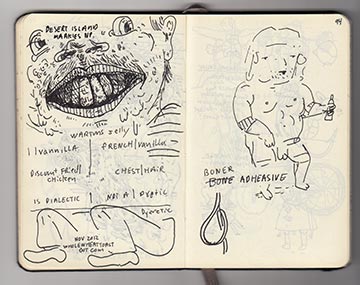 DESERT ISLAND
MARKUS NP.
WARTONS Jelly
VANNILLA
FRENCH VANILLA
DISCOUNT FRIED
CHICKEN
CHEST HAIR
IS DIALECTIC
NOT A
NOV 2012
WHOLEWHEATTOAST
DOT COM
94
BONER
BONE ADHEASIVE